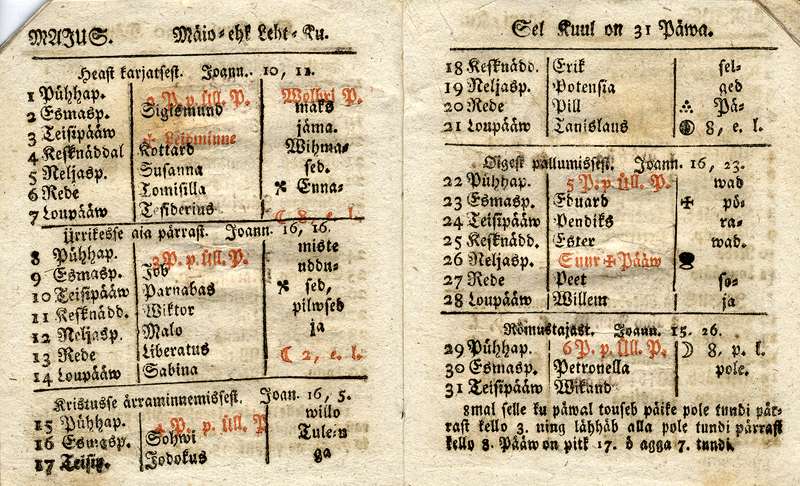 MAJUS. Mäio-ehk Leht-Ku.
Heast karjatsest. Joann. 10, 11.
1 Pühhap. 2 P. p. Üll. P. Wolbri P.
2 Esmasp. Sigismund maks
3 Teisipääw ✠ Leidminne jäma.
4 Kesknäddal Kottard Wihma-
5 Neljasp. Susanna sed.
6 Rede Tomisilla Enna-
7 Loupääw Tesiderius ☾ 8, e. l.
Ürrikesse aia pärrast. Joann. 16, 16.
8 Pühhap. 3 P. p. Üll. P. miste
9 Esmasp. Job uddu-
10 Teisipääw Parnabas sed,
11 Kesknädd. Wiktor pilwseb
12 Neljasp. Malo ja
13 Rede Liberatus ☾ 2, e. l.
14 Loupääw Sabina
Kristusse ärraminnemissest. Joan. 16, 5.
15 Pühhap. 4 P. p. üll. P willo
16 Esmasp. Sohwi Tule-n
17 Teisip. Jodokus ga
Sel Kuul on 31 Päwa.
18 Kesknädd. Erik sel-
19 Neljasp. Potensia ged
20 Rede Pill Pä-
21 Loupääw Tanislaus 8, e. l.
Öigest pallumissest. Joann. 16, 23.
22 Pühhap. 5 P. p. Üll. P. wad
23 Esmasp. Eduard ✠ pö-
24 Teisipääw Pendiks ra-
25 Kesknädd. Ester wad.
26 Neljasp. Suur ✠ Pääw
27 Rede Peet so-
28 Loupääw Willem ja
Römustajast. Joann. 15. 26.
29 Pühhap. 6 P. p. Üll. P. ☽ 8, p. l.
30 Esmasp. Petronella pole.
31 Teisipääw Wikand
8mal selle ku päwal touseb päike pole tundi pär-
rast kello 3. ning lähhäb alla pole tundi pärrast
kello 8. Pääw on pitk 17. ö agga 7. tundi.